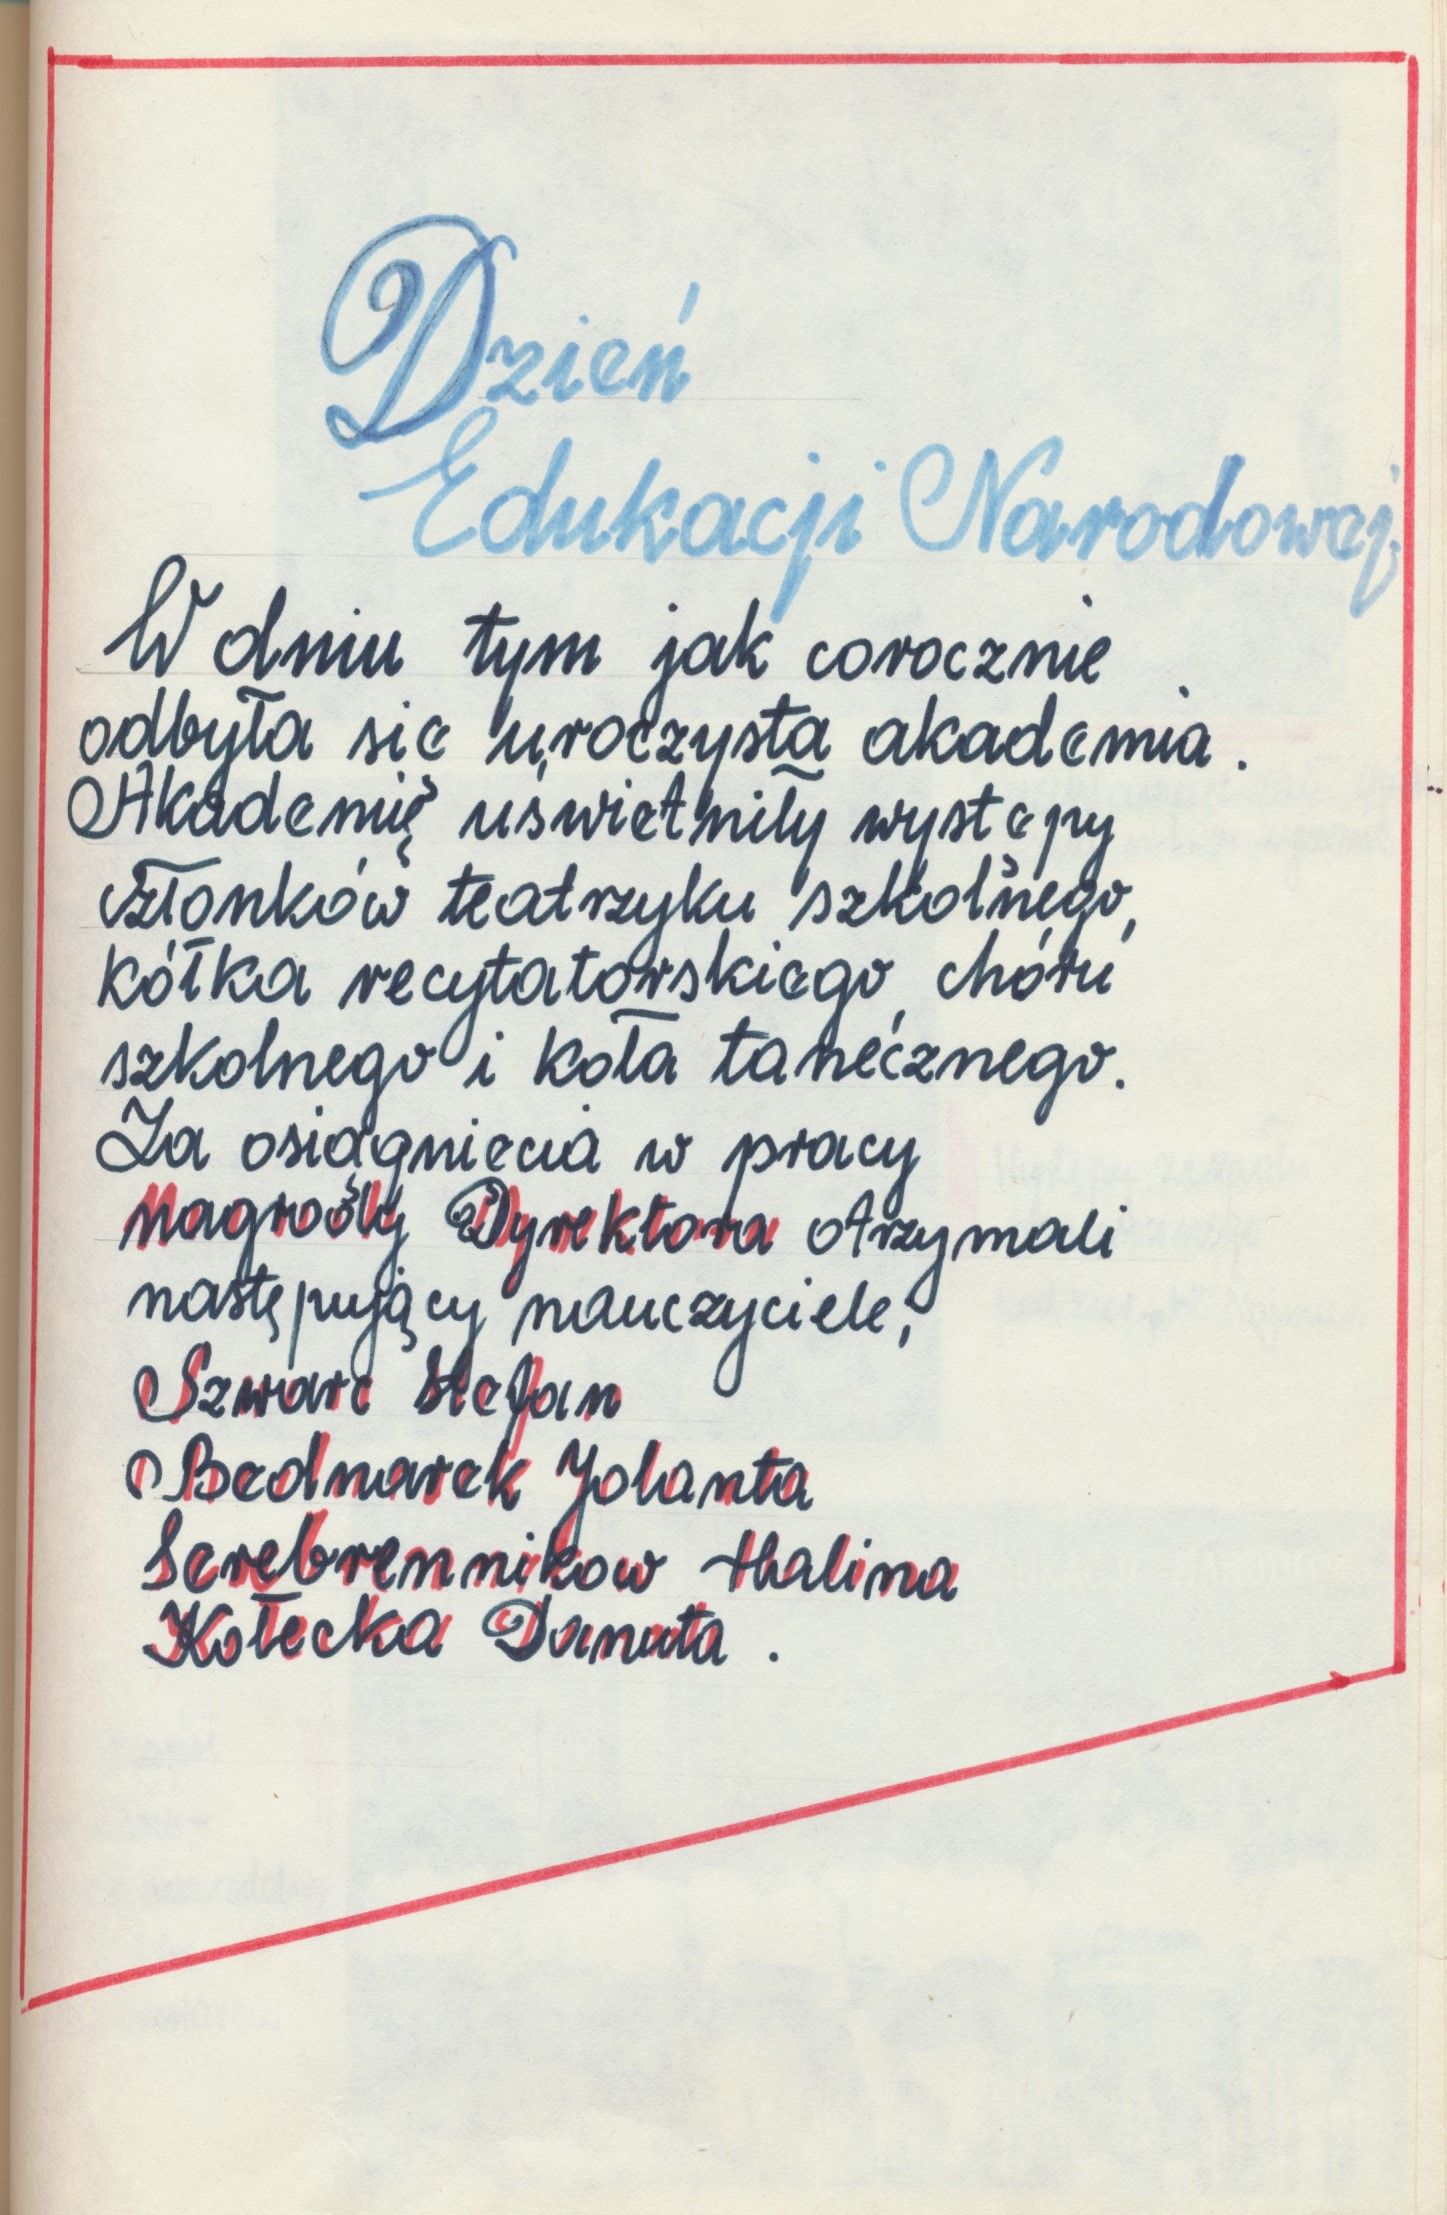 Dzień
Edukacji Narodowej
W dniu tym jak corocznie
odbyła się uroczysta akademia.
Akademię uświetniły występy
członków teatrzyku szkolnego,
kółka recytatorskiego, chóru
szkolnego i koła tanecznego.
Za osiągnięcia w pracy
Nagrody Dyrektora otrzymali
następujący nauczyciele;
Szwarc Stefan
Bednarek Jolanta
Serebrennikow Halina
Kołecka Danuta.